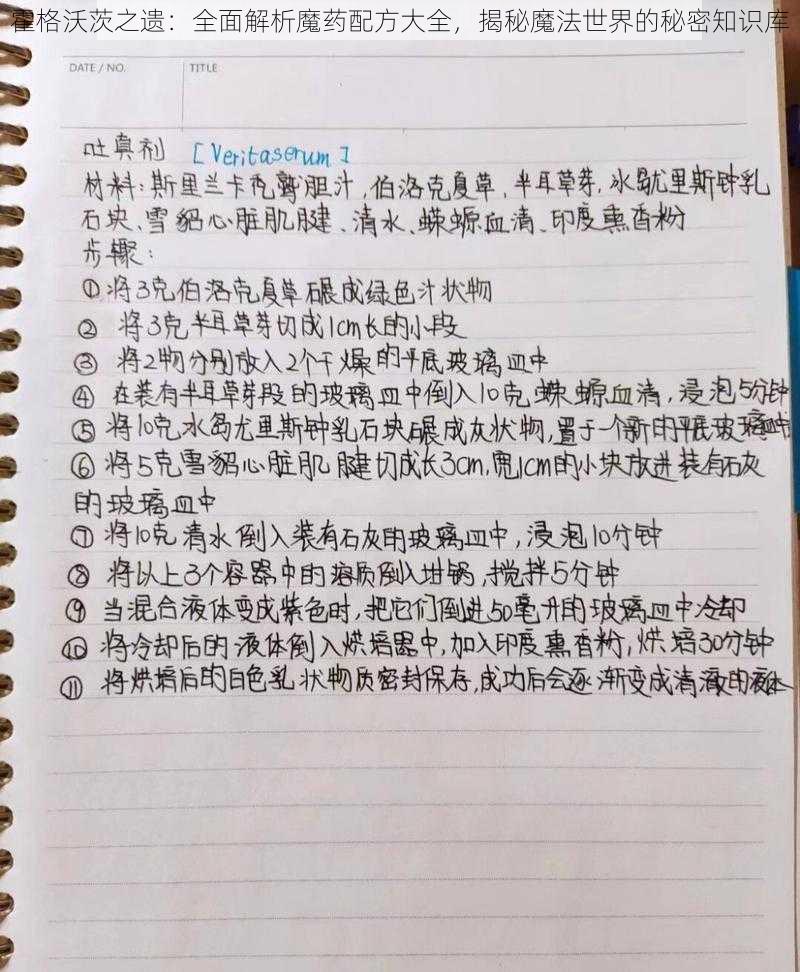 霍格沃茨之遗：全面解析魔药配方大全，揭秘魔法世界的秘密知识库
DATE / NO.
TITLE
吐真剂 [Veritaserum]
材料：斯里兰卡秃鹫胆汁，伯洛克夏草，半耳草芽，冰岛尤里斯钟乳
石块、雪貂心脏肌腱、清水、蝾螈血清、印度熏香粉
步骤：
①将3克伯洛克夏草碾成绿色汁状物
② 将3克半耳草芽切成1cm长的小段
③ 将2物分别放入2个干燥的平底玻璃皿中
④ 在装有半耳草芽段的玻璃皿中倒入10克蝾螈血清，浸泡5分钟
⑤ 将10克冰岛尤里斯钟乳石块碾成灰状物，置于一个新的平底玻璃皿中
⑥ 将5克雪貂心脏肌腱切成长3cm，宽1cm的小块放进装有石灰
的玻璃皿中
⑦ 将10克清水倒入装有石灰的玻璃皿中，浸泡10分钟
⑧ 将以上3个容器中的溶质倒入坩锅，搅拌5分钟
⑨ 当混合液体变成紫色时，把它们倒进50毫升的玻璃皿中冷却
⑩ 将冷却后的液体倒入烘培器中，加入印度熏香粉，烘培30分钟
⑪ 将烘培后的白色乳状物质密封保存，成功后会逐渐变成清澈的液体